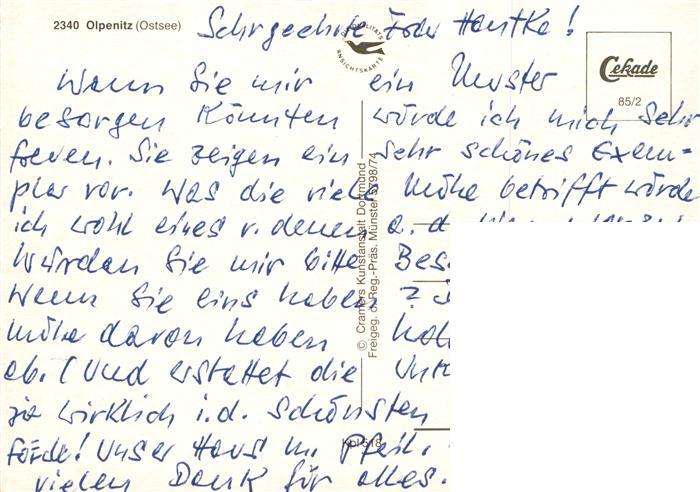 2340 Olpenitz (Ostsee)
Sehrgeehrte Frau Hantke!
QUALITÄTS
ANSICHTSKARTE
Cekade
85/2
Wenn Sie mir ein Muster
besorgen könnten würde ich mich sehr
freuen. Sie zeigen ein sehr schönes Exem=
plar vor. Was die viele Mühe betrifft würde
ich wohl eines v. denen a. d.
Würden Sie mir bitte Bes
Wenn Sie eins haben ?
Mühe davon haben
ab. (Und erstattet die
wirklich i. d. schönsten
Förde! Unser Haus m. Pfeil.
vielen Dank für alles.
© Cramers Kunstanstalt Dortmund
Freigeg. d. Reg.-Präs. Münster 5198/74